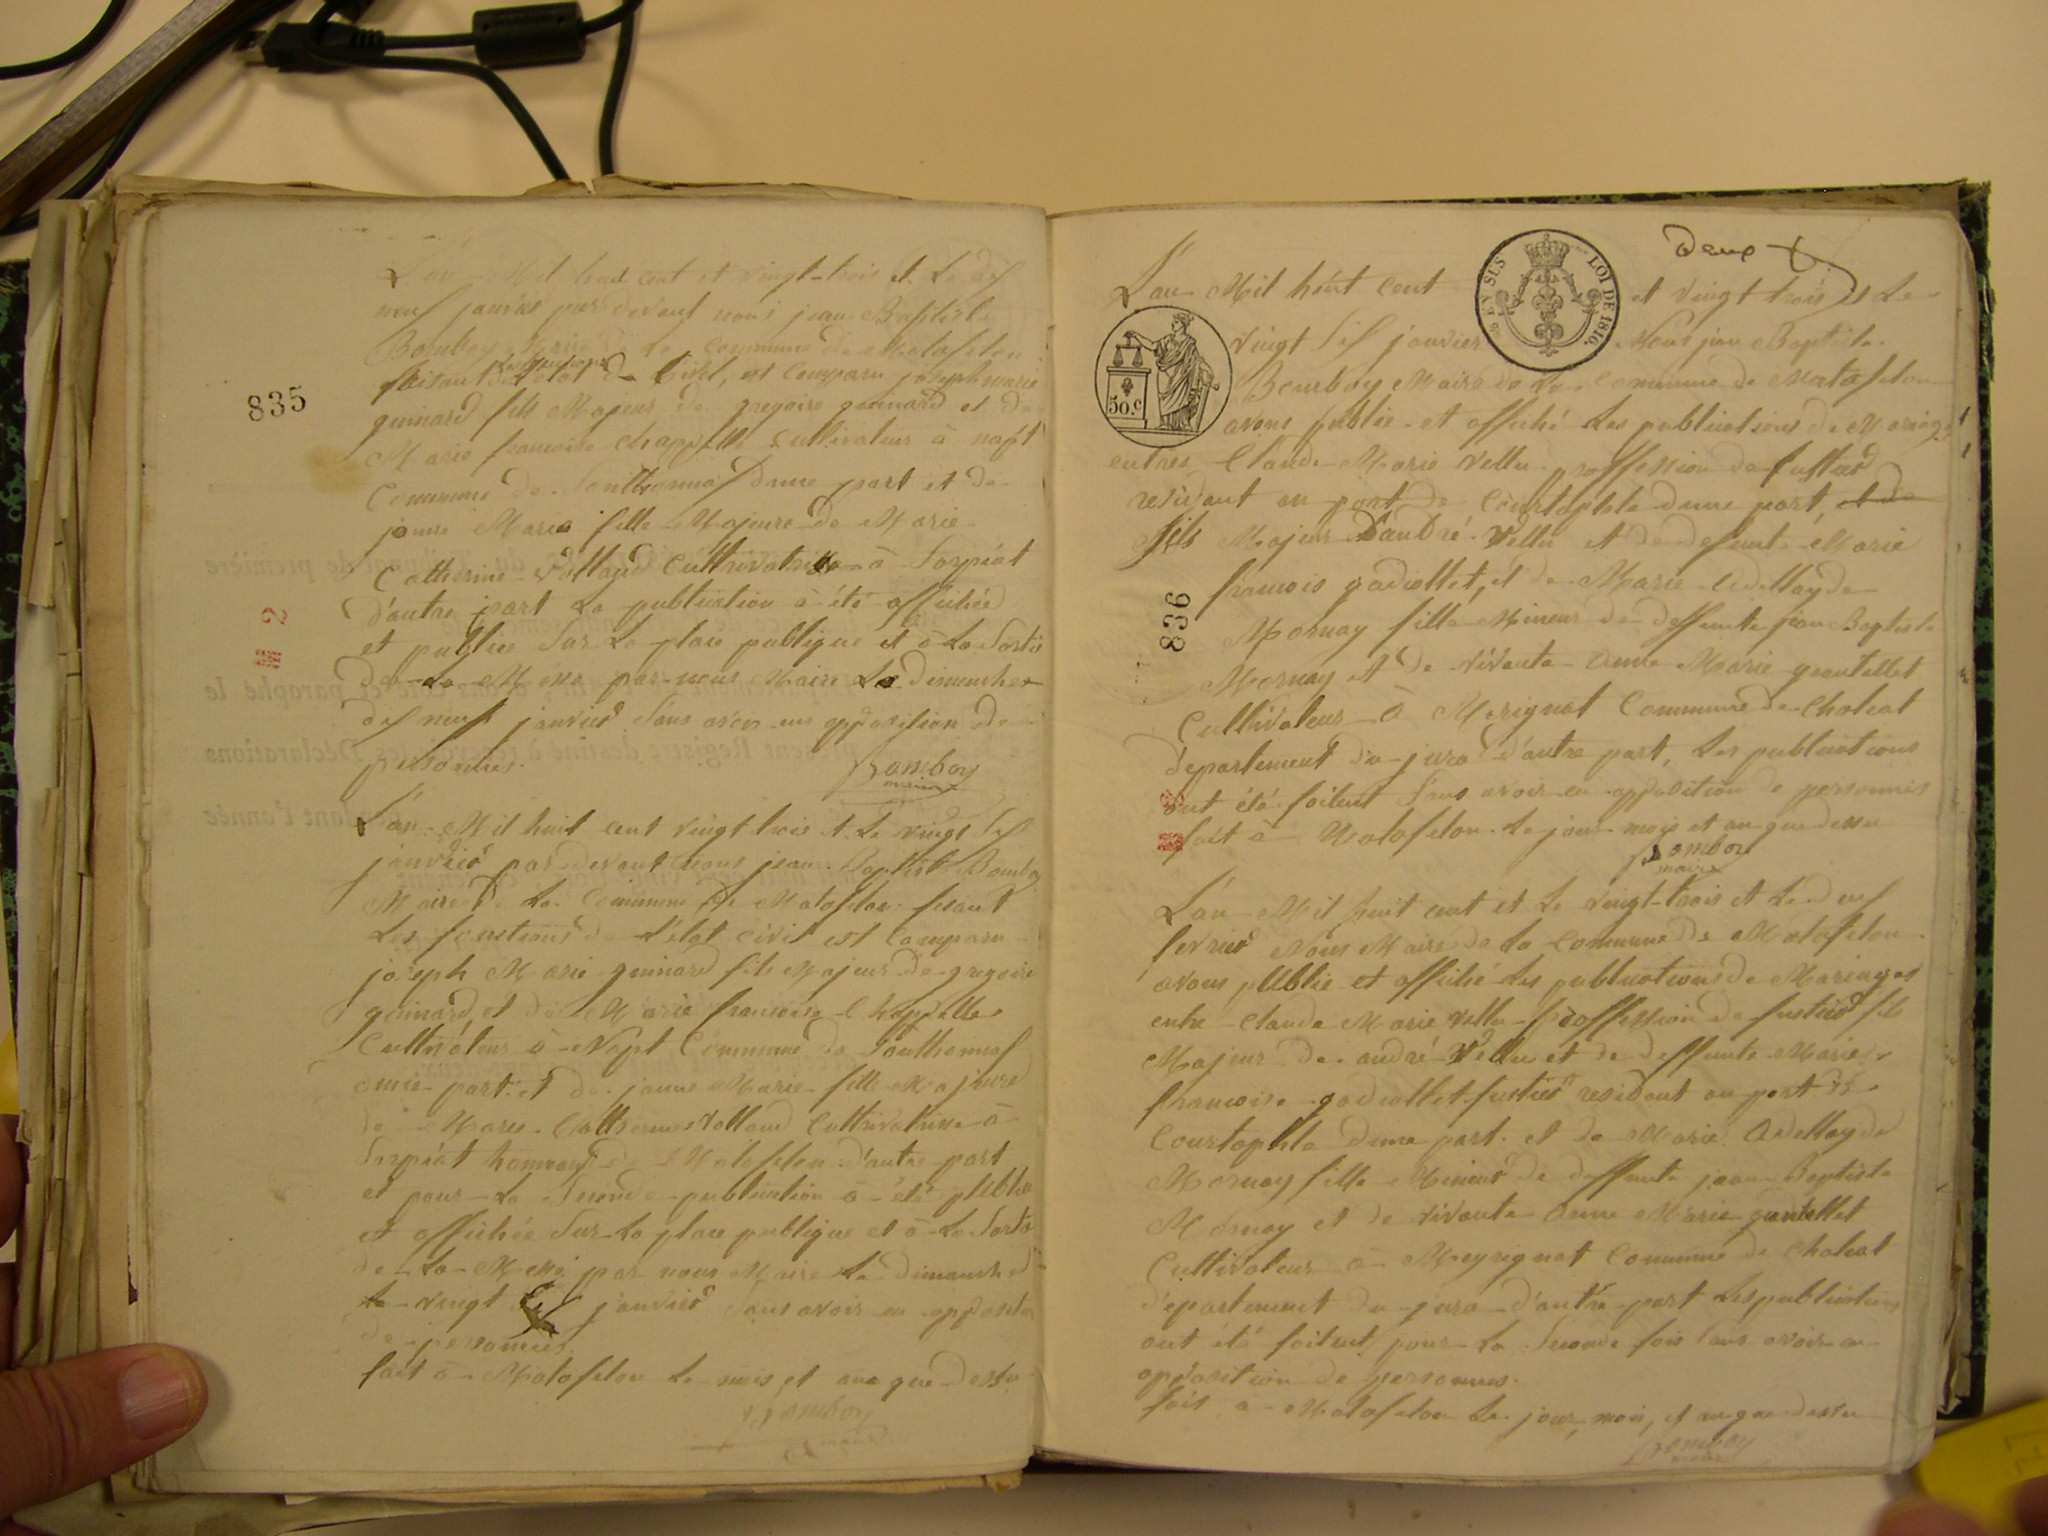 835
L'an Mil huit cent et vingt-trois et Le dix
neuf janvier par devant nous jean Baptiste
Bomboy Maire de La commune de Matafelon
faisant Les fonctions de L'état de Civil, est Comparu joseph marie
guinard fils Majeur de gregoire guinard et de
Marie francoise Chappelle Cultivateur à napt
Commune de Sonthonnax d'une part et de
janne Marie fille Majeure de Marie
Catherine Volland Cultivatrice à Sorpiat
d'autre part La publication à été affichée
et publiee Sur La place publique et à La Sortie
de La Messe par nous Maire Le dimanche
dix neuf janvier Sans avoir eu opposition de
personnes.
Bomboy
maire
L'an Mil huit cent vingt trois et Le vingt Six
janvier par devant nous jean Baptiste Bomboy
Maire de La Commune de Matafelon fesant
Les fonctions de L'état civil est Comparu
joseph Marie guinard fils Majeur de gregoire
guinard et de Marie francoise Chappelle
Cultivateur à Napt Commune de Sonthonnax
d'une part et de janne Marie fille Majeure
de Marie Catherine Volland Cultivatrice à
Sorpiat de Matafelon d'autre part
et pour La Seconde publication à été publiée
et affichée Sur La place publique et à La Sortie
de La Messe par nous Maire Le dimanche
Le vingt Six janvier Sans avoir eu opposition
de personnes.
fait à Matafelon Le mois et an que dessu
Bomboy
maire
2
deux
EN SUS
LOI DE 1816.
50.c
836
L'an Mil huit Cent et vingt trois et Le
vingt Six janvier Nous jean Baptiste
Bomboy Maire de La Commune de Matafelon
avons publie et affiché Les publications de Mariage
entres Claude Marie Vellu proffession de fustier
residant au port de Courtophle d'une part, et de
fils Majeur D'andré Vellu et de defunte Marie
francois godiollet, et de Marie Adellayde
Mornay fille Mineur de deffunte jean Baptiste
Mornay et de vivante Anne Marie
Cultivateur à Merignat Commune de Chaleat
departement du jura d'autre part, Les publications
ont été faitent Sans avoir eu opposition de personnes
fait à Matafelon Le jour mois et an que dessu
Bomboy
maire
3
L'an Mil huit cent et Le vingt-trois et Le deux
fevrier Nous Maire de La Commune de Matafelon
avons publie et affiché Les publications de Mariages
entre Claude Marie Vellu proffession de fustier fils
Majeur de andré Vellu et de deffunte Marie
francoise godiollet fustier residant au port de
Courtophle d'une part. et de Marie Adellayde
Mornay fille Mineur de deffunte jean Baptiste
Mornay et de vivante Anne Marie
Cultivateur à Meyrignat Commune de Chaleat
departement du jura d'autre part Les publications
ont été faitent pour La Seconde fois Sans avoir eu
opposition de personnes.
fait à Matafelon Le jour, mois, et an que dessu
Bomboy
maire